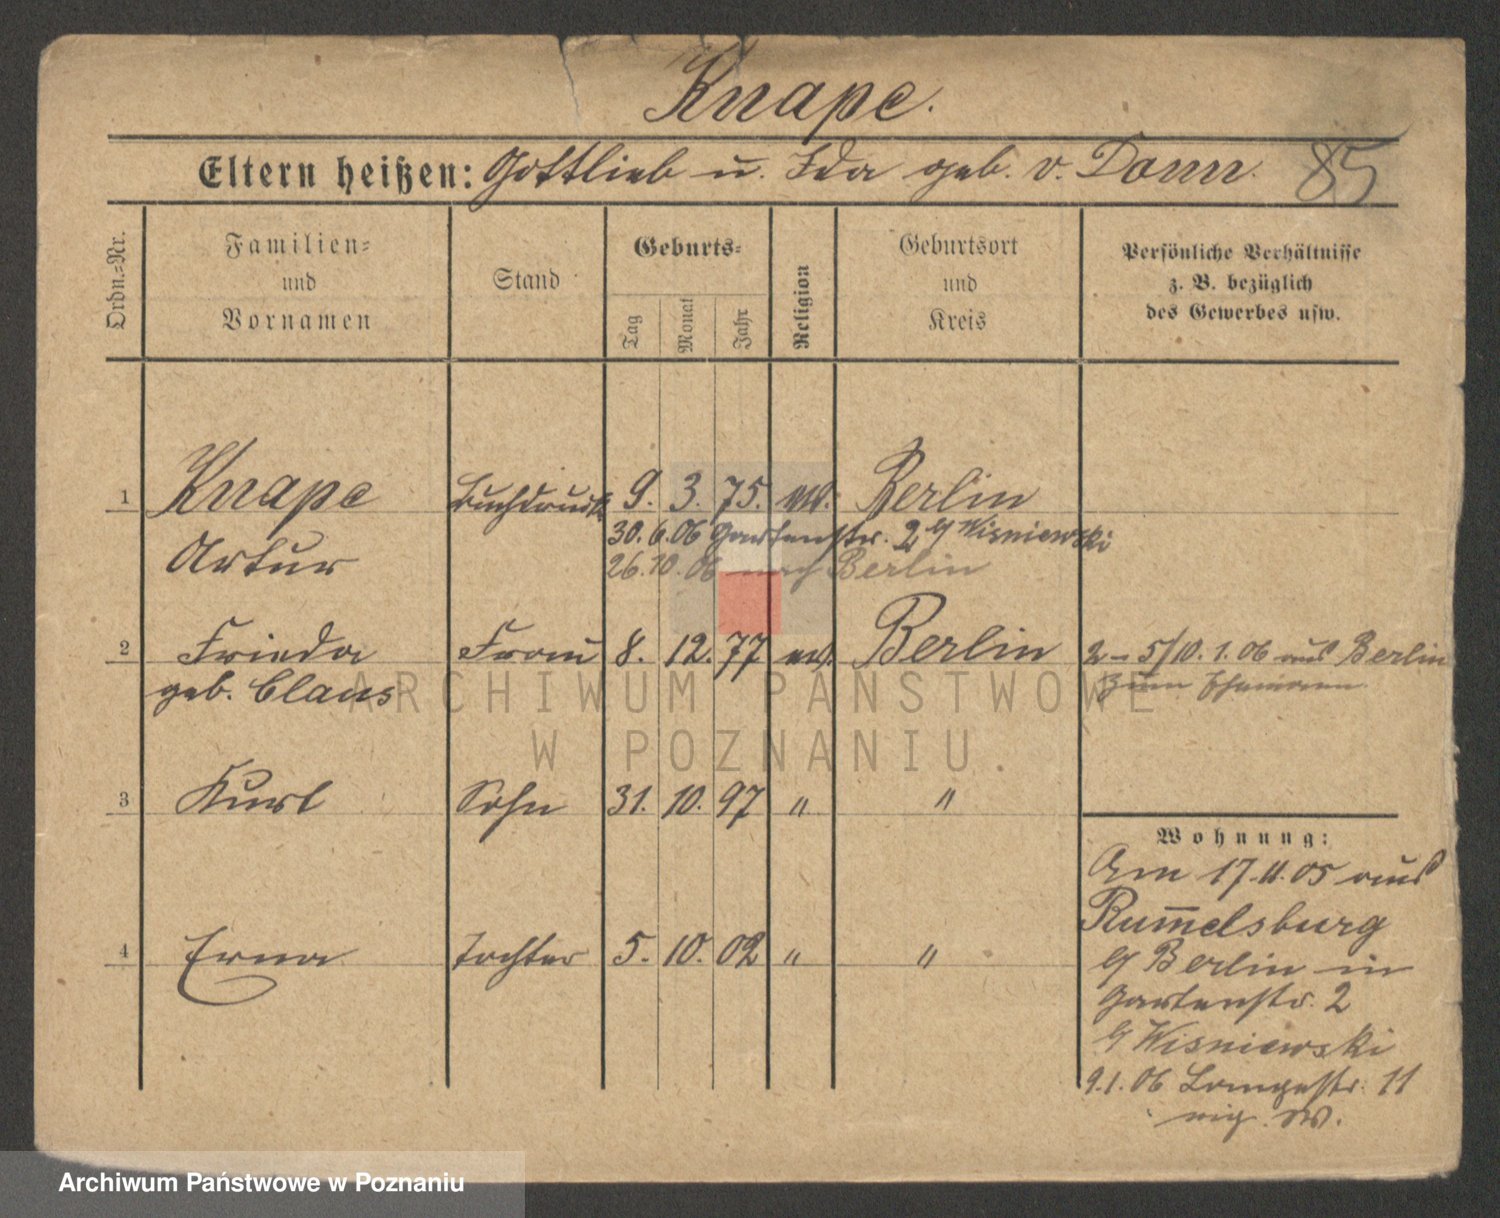 Knape.
Eltern heißen: Gottlieb u. Ida geb. v. Donn. 85
Ordn.=Nr.
Familien=
und
Vornamen
Stand
Geburts=
Tag
Monat
Jahr
Religion
Geburtsort
und
Kreis
Persönliche Verhältnisse
z. B. bezüglich
des Gewerbes usw.
1 Knape Buchdruck 9. 3. 75. ev. Berlin
Artur
30. 6. 06 Gartenstr. 2 b/ Wisniewski
26. 10. 06 nach Berlin
2 Frieda Frau 8. 12. 77 ev. Berlin 2 – 5/10. 1. 06 aus Berlin
geb. Claus zum Ehemann
3 Kurt Sohn 31. 10. 97 " "
4 Erna Tochter 5. 10. 02 " "
Wohnung:
Am 17. 11. 05 aus
Rum̄elsburg
b/ Berlin in
Gartenstr. 2
b/ Wisniewski
9. 1. 06 Langestr. 11
eig. W.
ARCHIWUM PAŃSTWOWE
W POZNANIU.
Archiwum Państwowe w Poznaniu